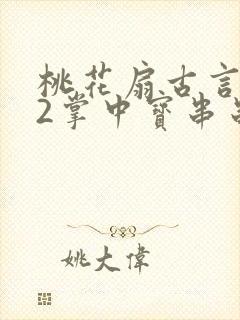 桃花扇古言
2掌中寳串
姚大偉